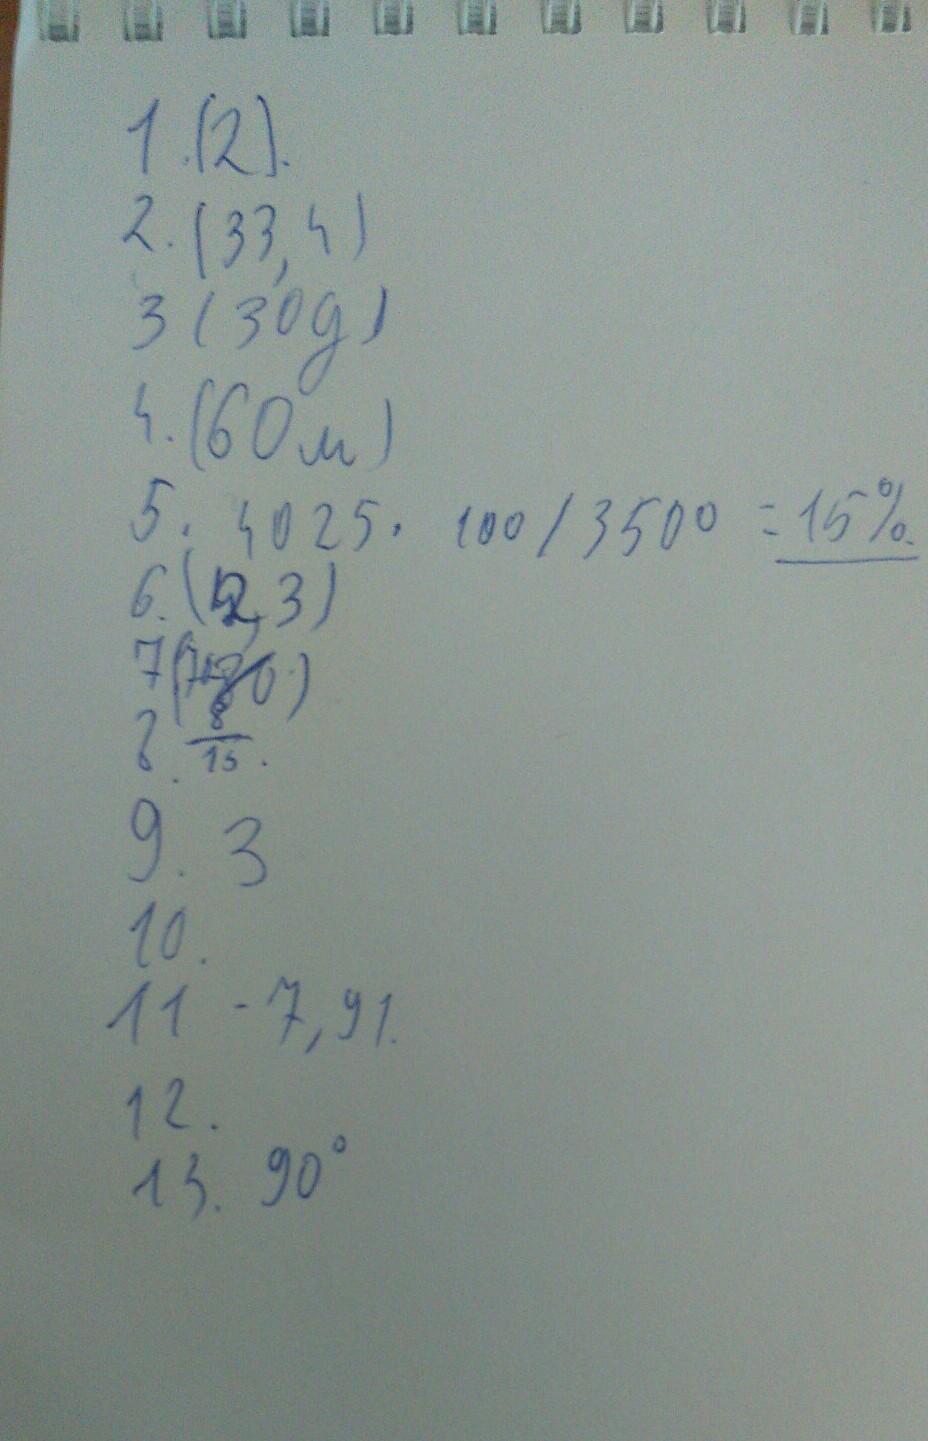 1.(2).
2. (33,4)
3 (30g)
4. (60м)
5. 4025. 100/3500 = 15%.
6. (2,3)
7
8. 8/15.
9. 3
10.
11 -7,91.
12.
13. 90°